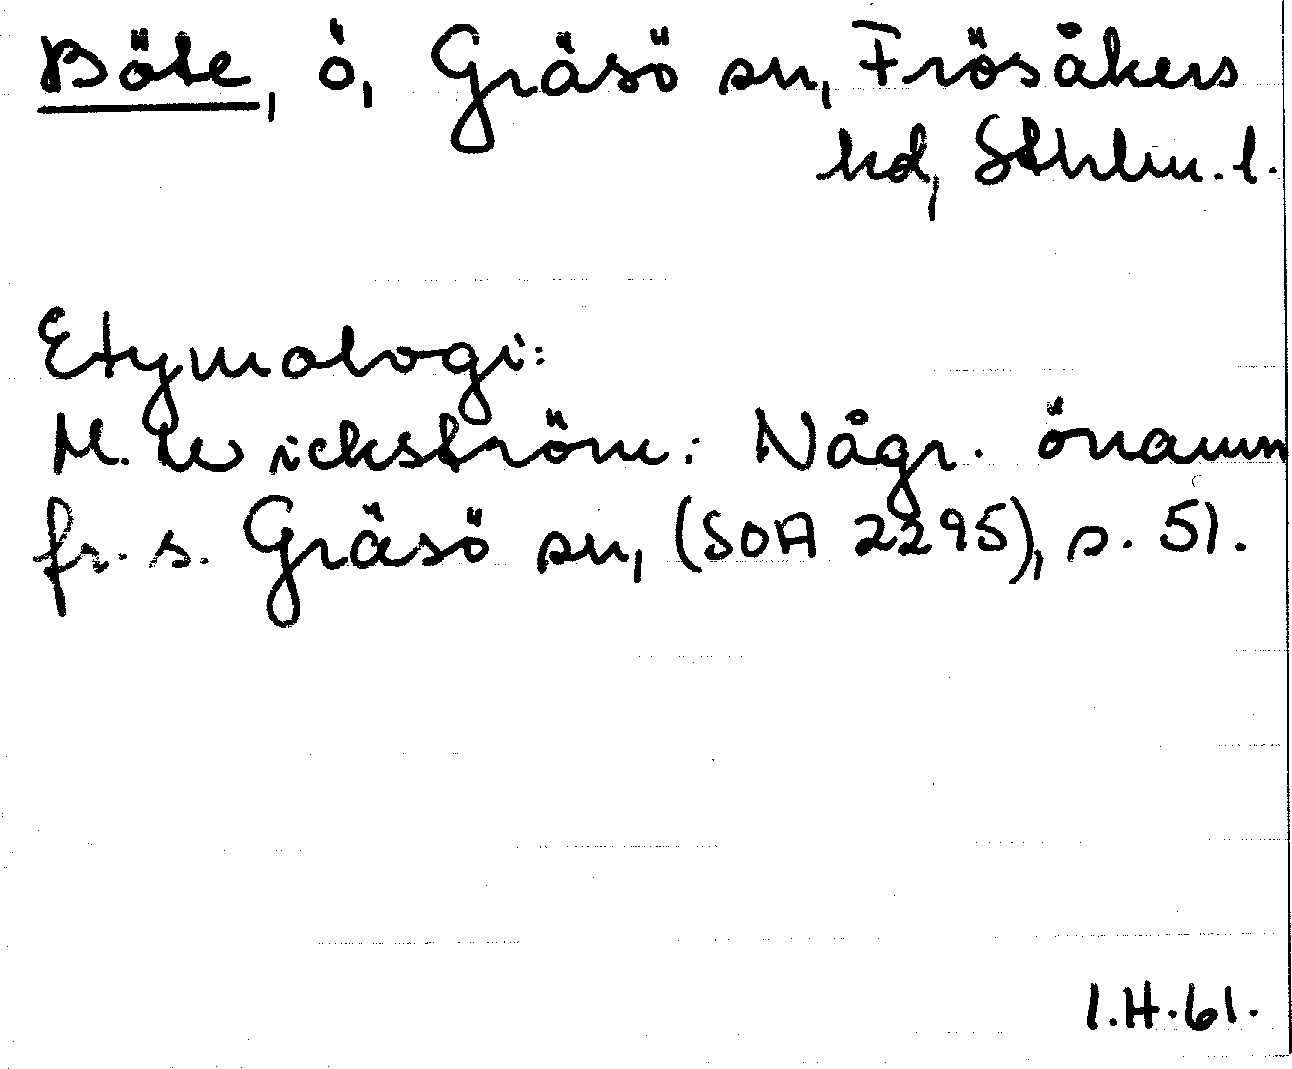 Böte, ö, Gräsö sn, Frösåkers
hd, Sthlm. l.
Etymologi:
M. Wickström: Någr. önamn
fr. s. Gräsö sn, (SOA 2295), s. 51.
I.H.61.